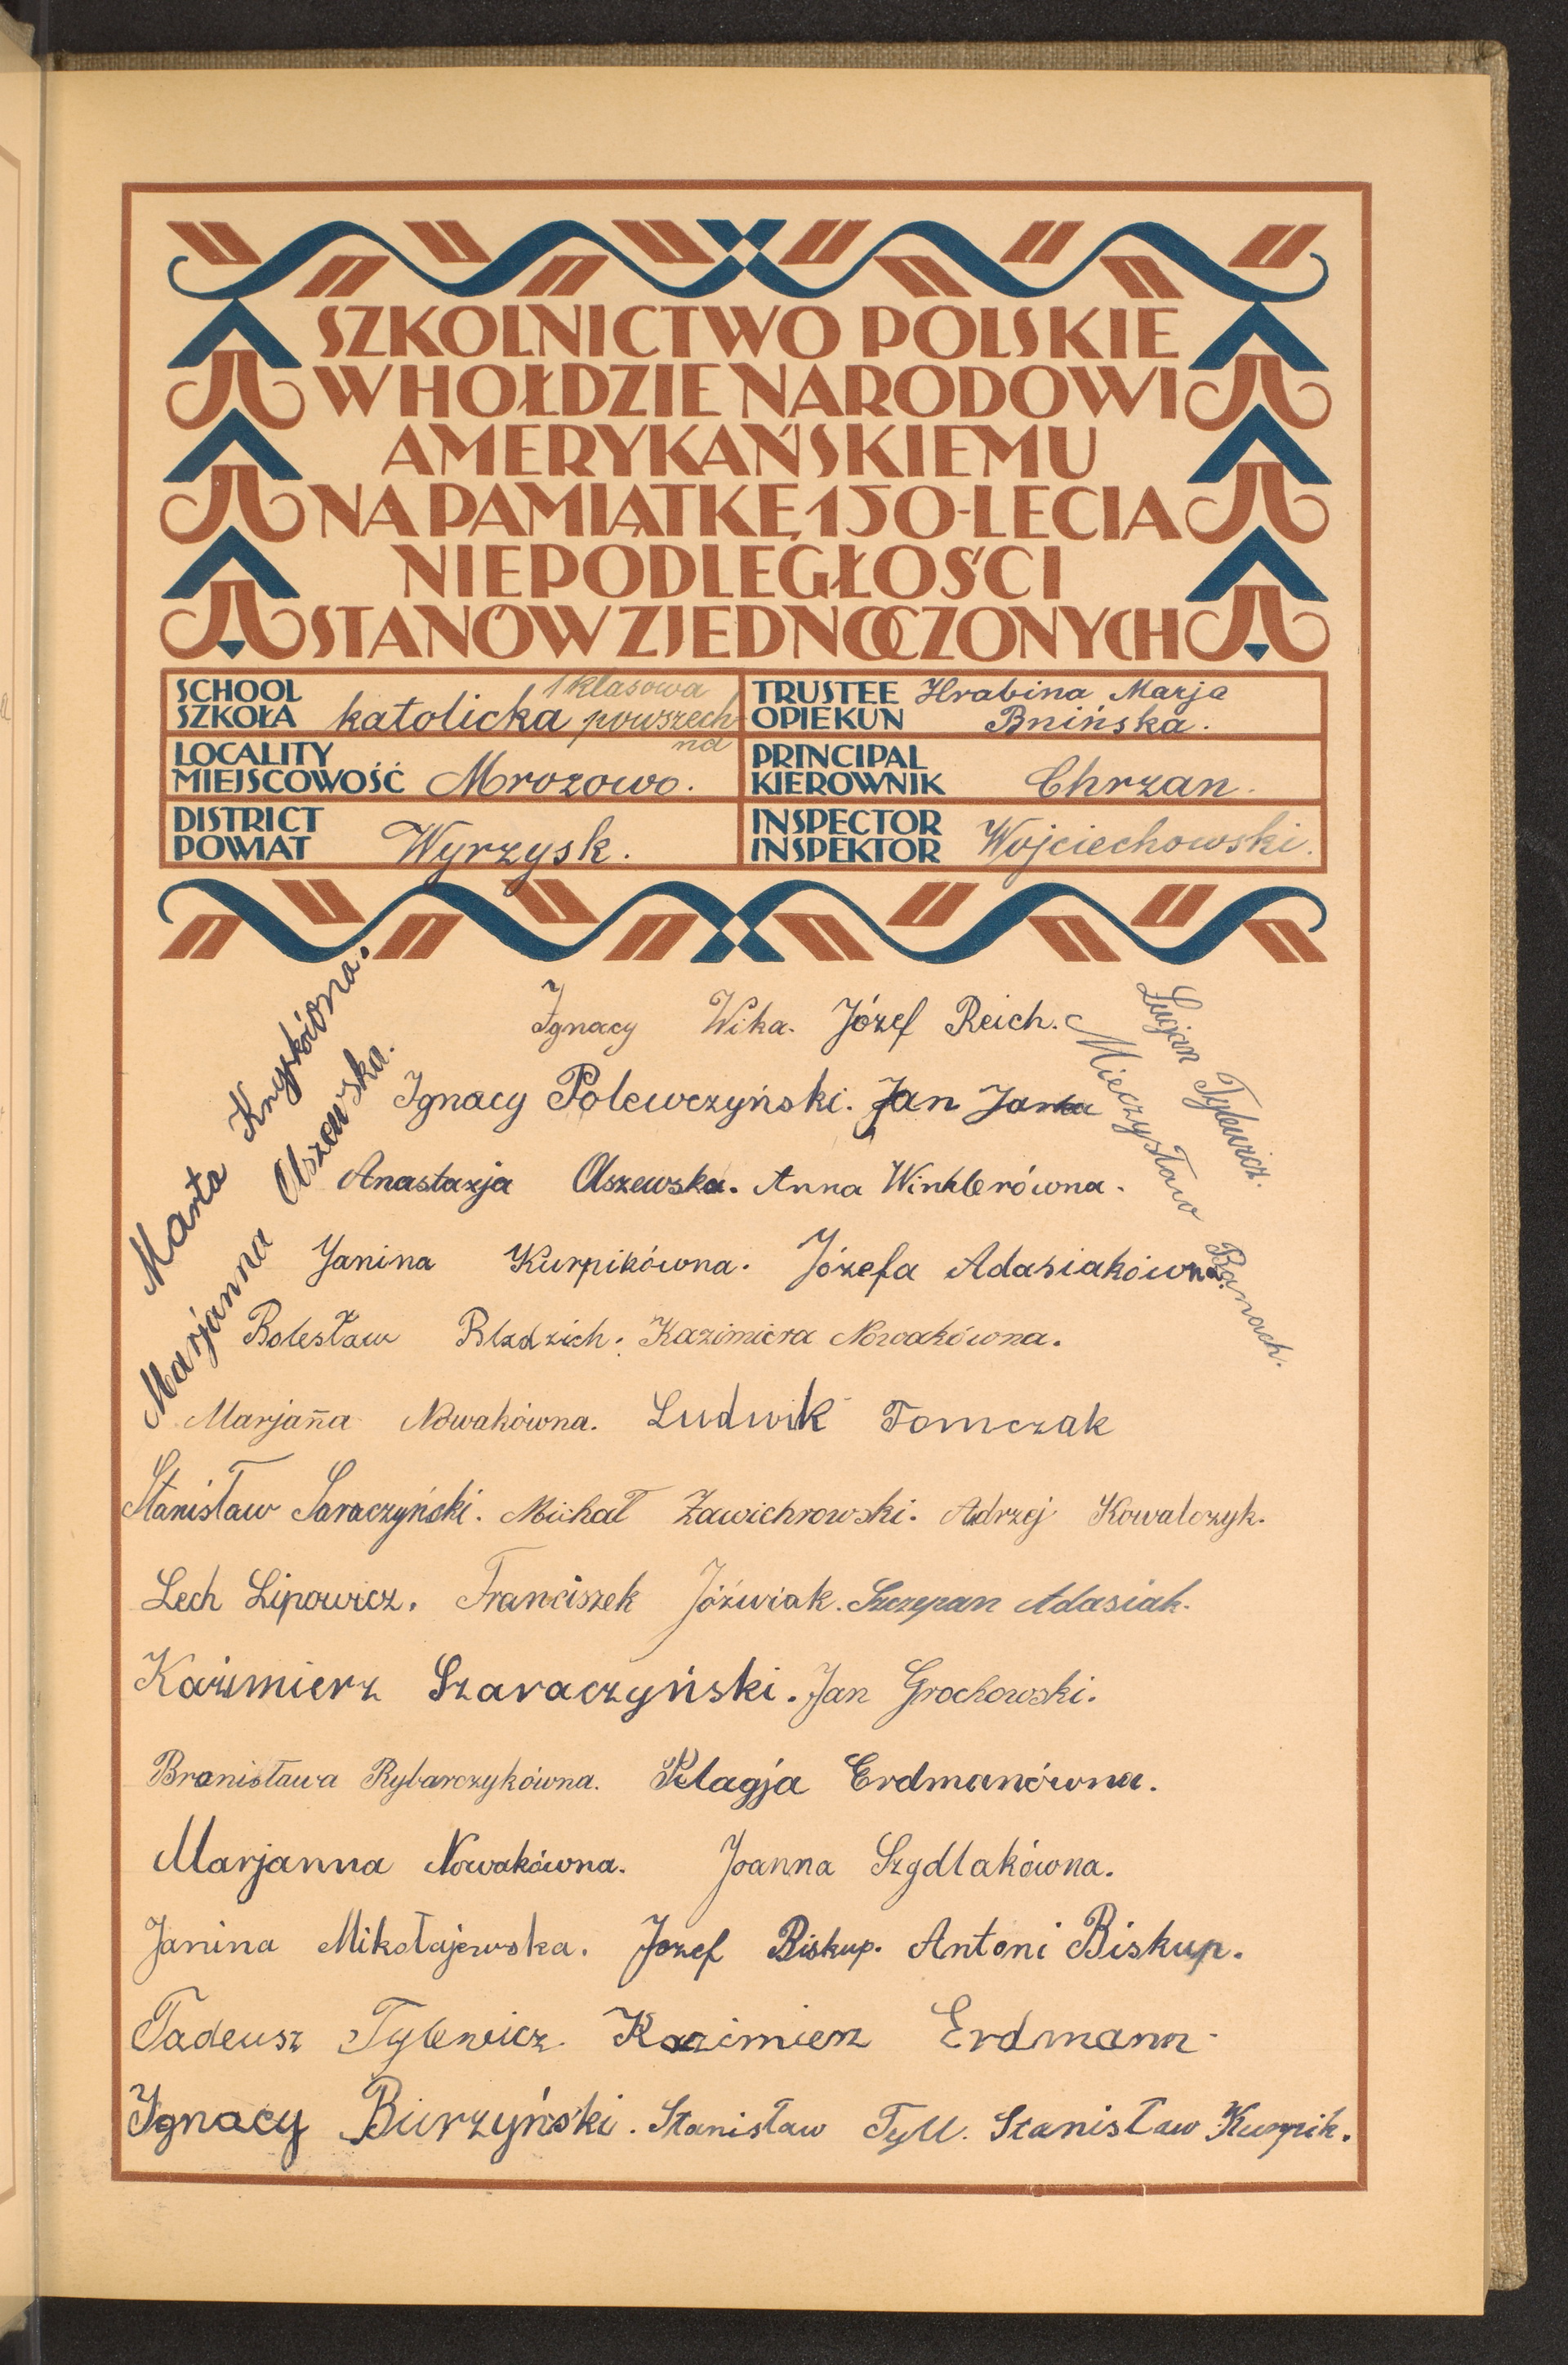 SZKOLNICTWO POLSKIE
W HOŁDZIE NARODOWI
AMERYKAŃSKIEMU
NA PAMIĄTKĘ 150-LECIA
NIEPODLEGŁOŚCI
STANÓW ZJEDNOCZONYCH
SCHOOL
SZKOŁA
katolicka
1 klasowa
powszech
na
TRUSTEE
OPIEKUN
Hrabina Marja
Bnińska.
LOCALITY
MIEJSCOWOŚĆ
Mrozowo.
PRINCIPAL
KIEROWNIK
Chrzan.
DISTRICT
POWIAT
Wyrzysk.
INSPECTOR
INSPEKTOR
Wojciechowski.
Marta
Marjanna Olszewska.
Ignacy Wika. Józef Reich.
Lucjan Tylewicz.
Mieczysław Banach.
Ignacy Polewczyński. Jan
Anastazja Olszewska. Anna Winklerówna.
Janina Kurpikówna. Józefa Adasiakówna.
Bolesław Kazimiera Nowakówna.
Marjan̄a Nowakówna. Ludwik Tomczak
Stanisław Saraczyński. Michał Zawichrowski. Adrzej Kowalczyk.
Lech Lipowicz. Franciszek Jóźwiak. Szczepan Adasiak.
Kazimierz Szaraczyński. Jan Grochowski.
Bronisława Rybarczykówna. Pelagja Erdmanówna.
Marjanna Nowakówna. Joanna Szydlakówna.
Janina Mikołajewska. Jozef Biskup. Antoni Biskup.
Tadeusz Tylewicz. Kazimierz Erdmann.
Ignacy Burzyński. Stanisław Tyll. Stanisław Kurpik.